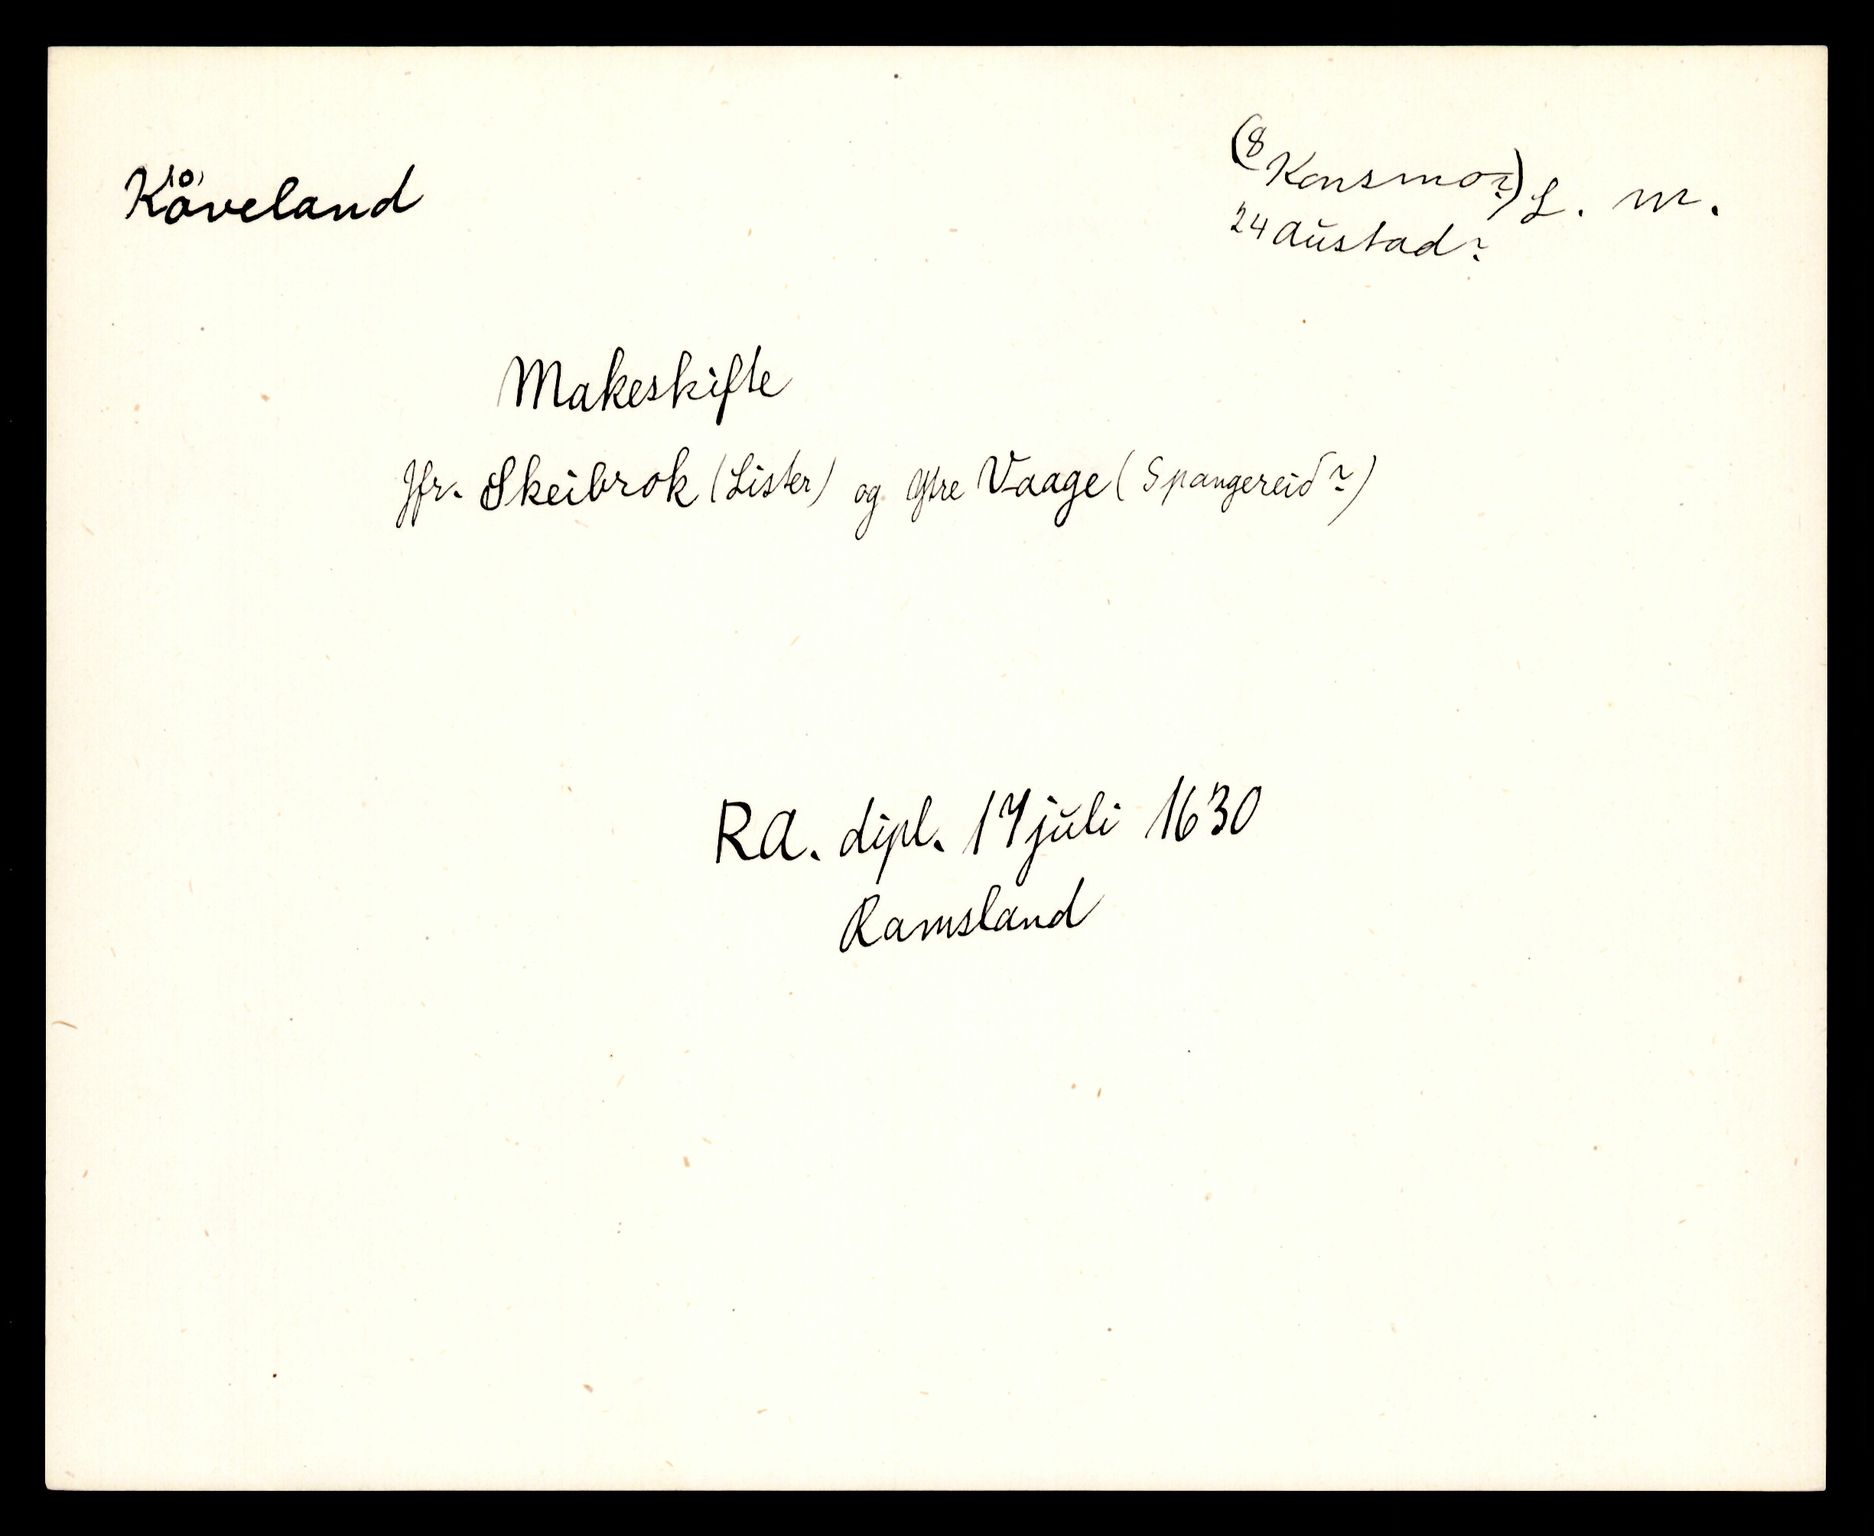 Kåveland
(8 Konsmo?) L. M.
24 Austad?
Makeskifte
Jfr. Skeibrok (Lister) og Ytre Vaage (Spangereid?)
RA. dipl. 17 juli 1630
Ramsland